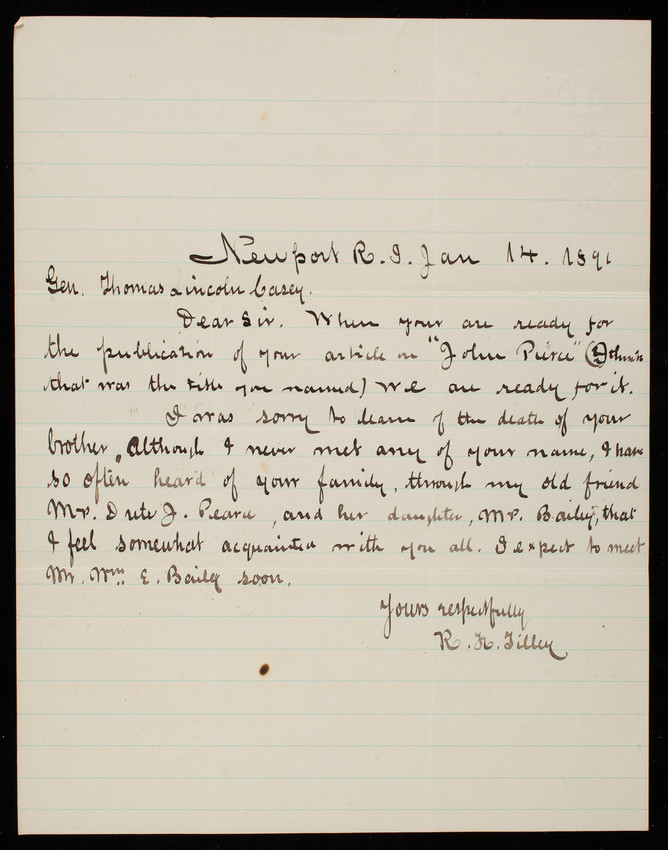 Newport R. I. Jan 14. 1891
Gen. Thomas Lincoln Casey.
Dear Sir. When your are ready for
the publication of your article on "John Pierce" (I think
that was the title you named) we are ready for it.
I was sorry to learn of the death of your
brother, Although I never met any of your name, I have
so often heard of your family, through my old friend
Mr. J. Pearce, and her daughter, Mr. Bailey, that
I feel somewhat acquainted with you all. I expect to meet
Mr. Wm. E. Baily soon.
Yours respectfully
R. H. Tilley